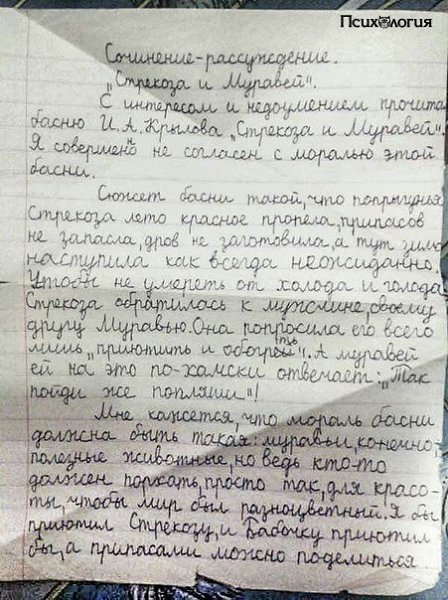 ПСИХОЛОГИЯ
Сочинение-рассуждение.
„Стрекоза и Муравей".
С интересом и недоумением прочитал
басню И.А.Крылова „Стрекоза и Муравей".
Я совершенно не согласен с моралью этой
басни.
Сюжет басни такой, что попрыгунья
Стрекоза лето красное пропела, припасов
не запасла, дров не заготовила, а тут зима
наступила как всегда неожиданно.
Чтобы не умереть от холода и голода
Стрекоза обратилась к мужчине, своему
другу Муравью. Она попросила его всего
лишь „приютить и обогреть". А муравей
ей на это по-хамски отвечает: „Так
пойди же попляши"!
Мне кажется, что мораль басни
должна быть такая: муравьи, конечно,
полезные животные, но ведь кто-то
должен порхать, просто так, для красо-
ты, чтобы мир был разноцветный. Я бы
приютил Стрекозу, и Бабочку приютил
бы, а припасами можно поделиться